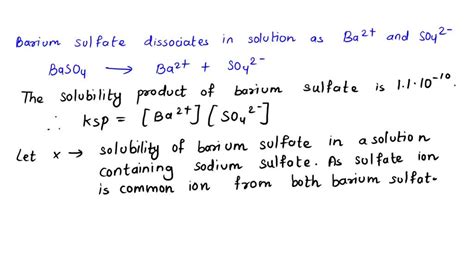 Barium sulfate dissociates in solution as Ba²⁺ and SO₄²⁻
BaSO₄ ⟶ Ba²⁺ + SO₄²⁻
The solubility product of barium sulfate is 1.1·10⁻¹⁰.
∴ ksp = [Ba²⁺][SO₄²⁻]
Let x → solubility of barium sulfate in a solution
containing sodium sulfate. As sulfate ion
is common ion from both barium sulfat.